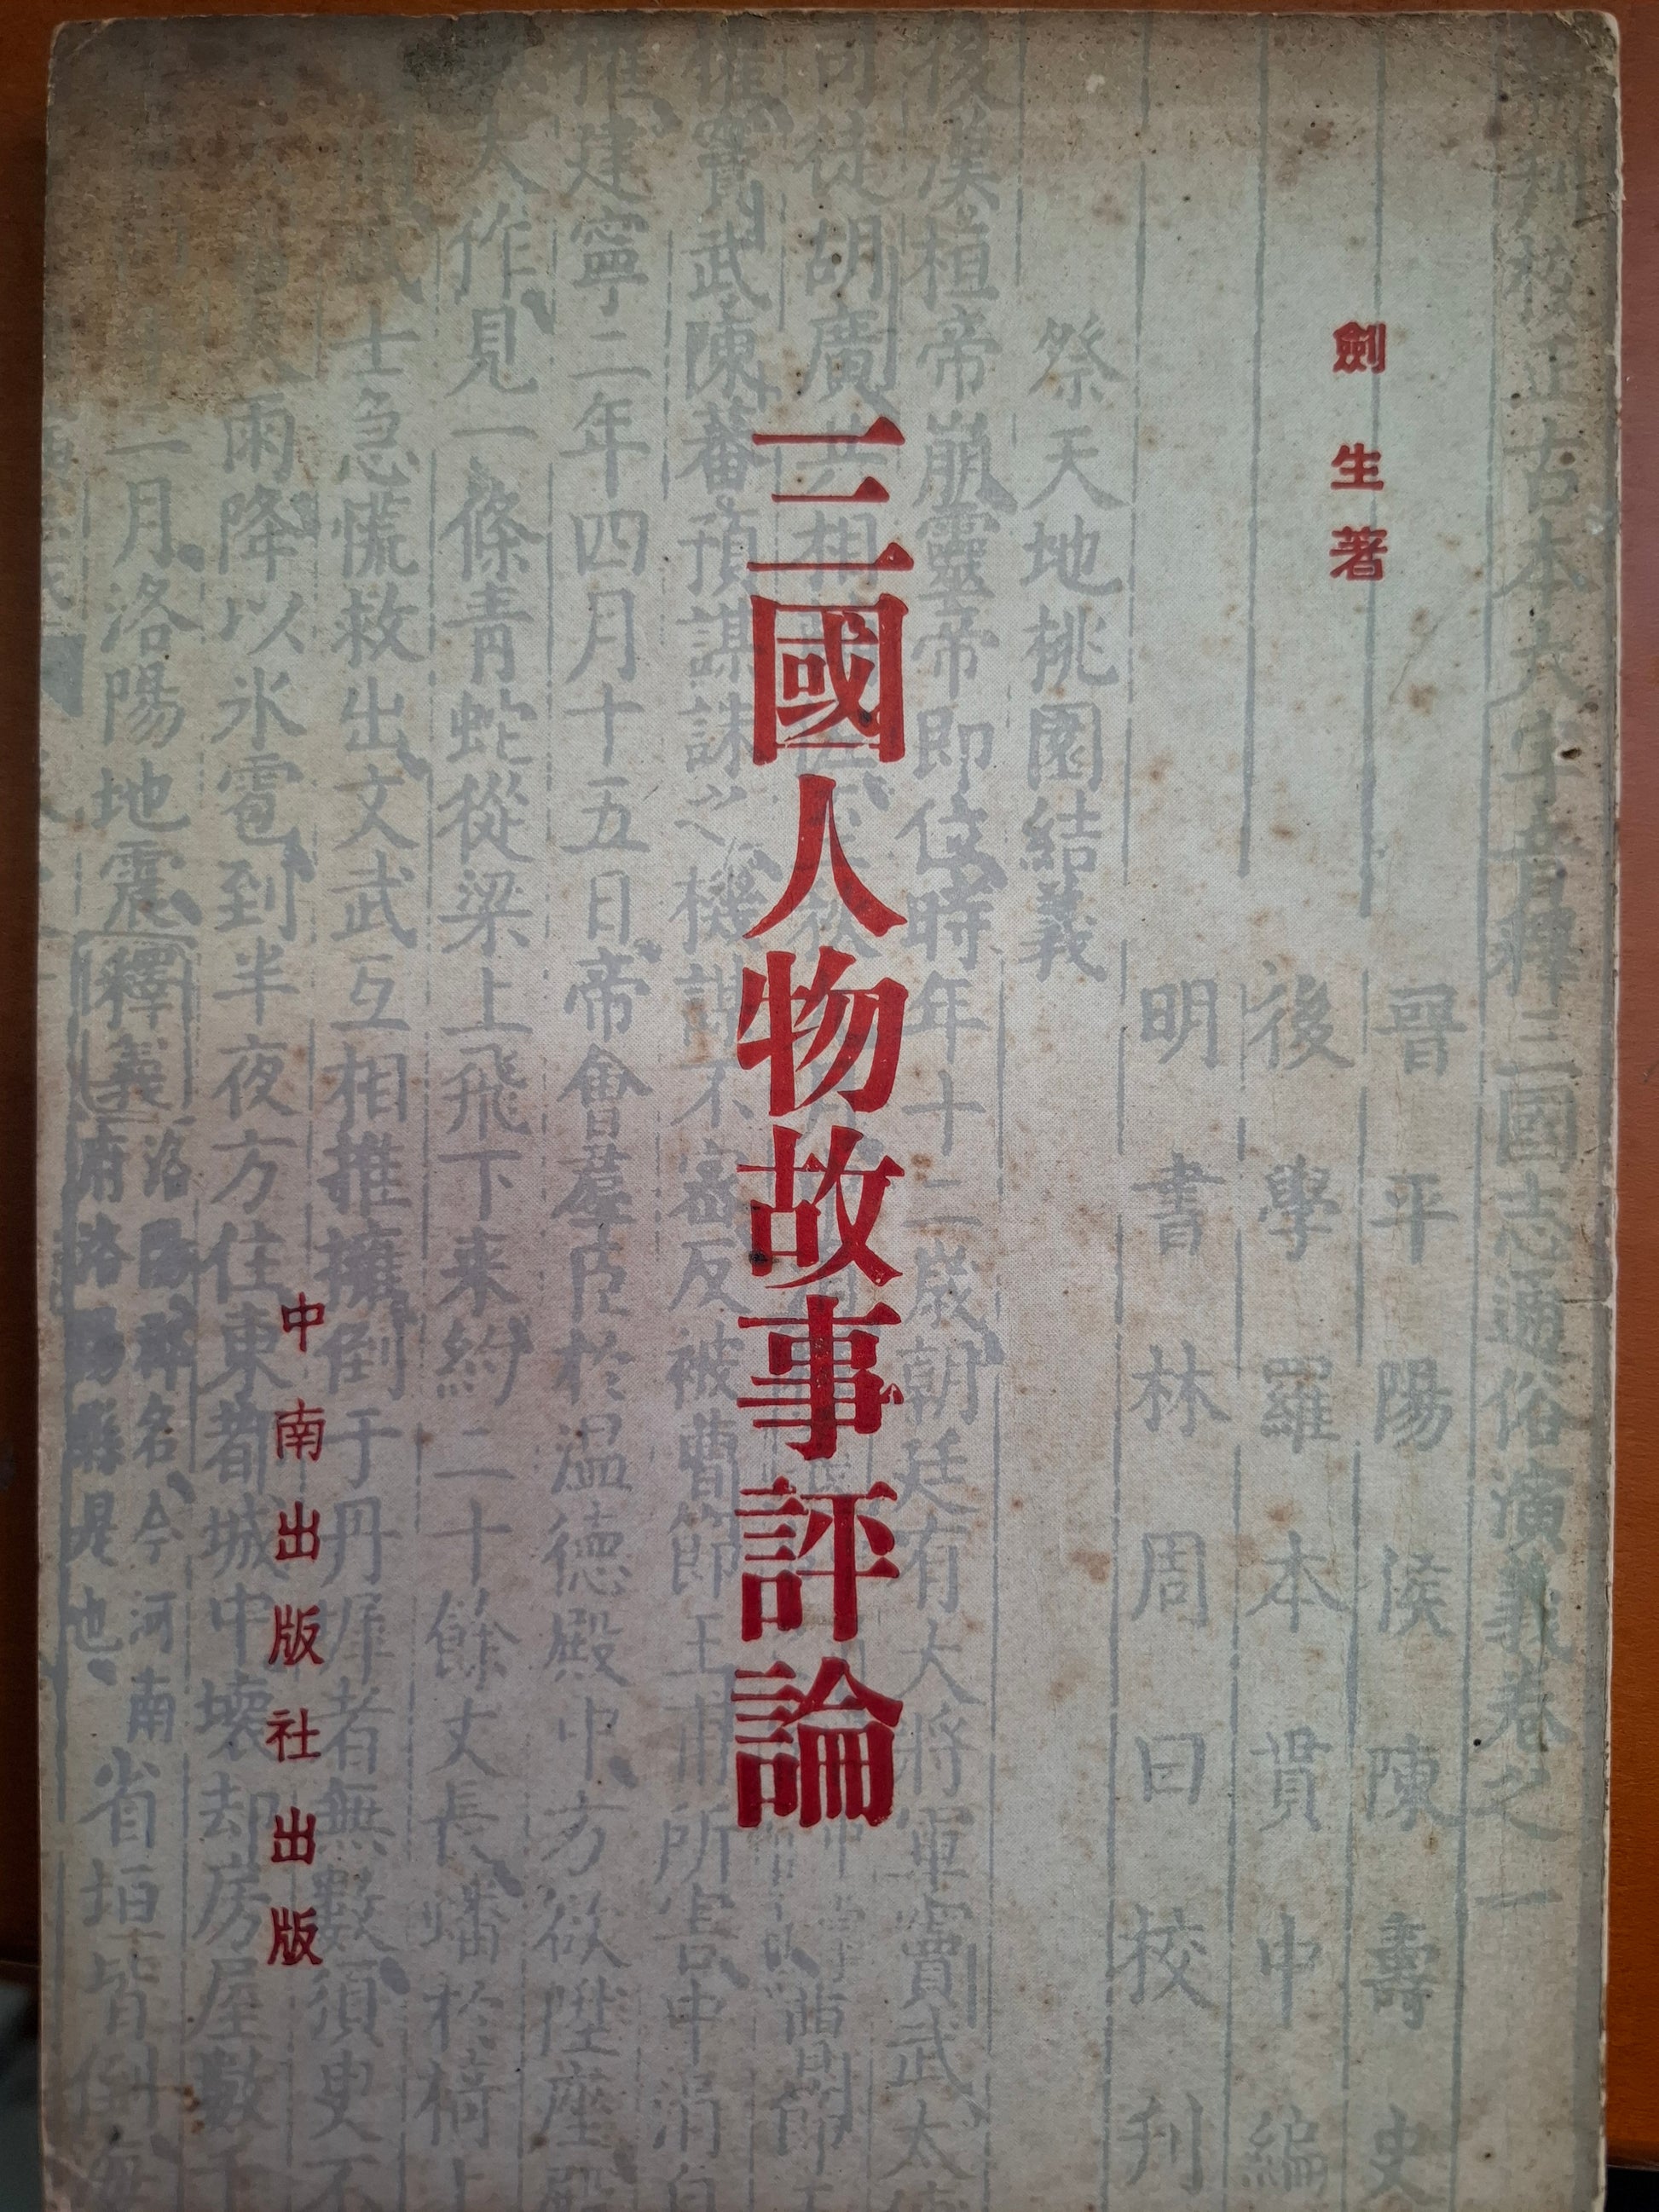 劍生著
三國人物故事評論
中南出版社出版
刊校正古本大字音釋三國志通俗演義卷之一
晉平陽侯陳壽史
後學羅本貫中編
明書林周曰校刊
祭天地桃園結義
後漢桓帝崩靈帝即位時年十二歲朝廷有大將軍竇武太
司徒胡廣共相
竇武陳蕃預謀誅之機謀不密反被曹節王甫所害中涓自
建寧二年四月十五日帝會羣臣於溫德殿中方欲陞座殿
大作見一條青蛇從梁上飛下来約二十餘丈長蟠於椅上
武士急慌救出文武互相推擁倒于丹墀者無數須臾不
雨降以氷雹到半夜方住東都城中壞却房屋數千
二月洛陽地震釋義洛陽郡名今河南府洛陽縣是也省垣皆倒海